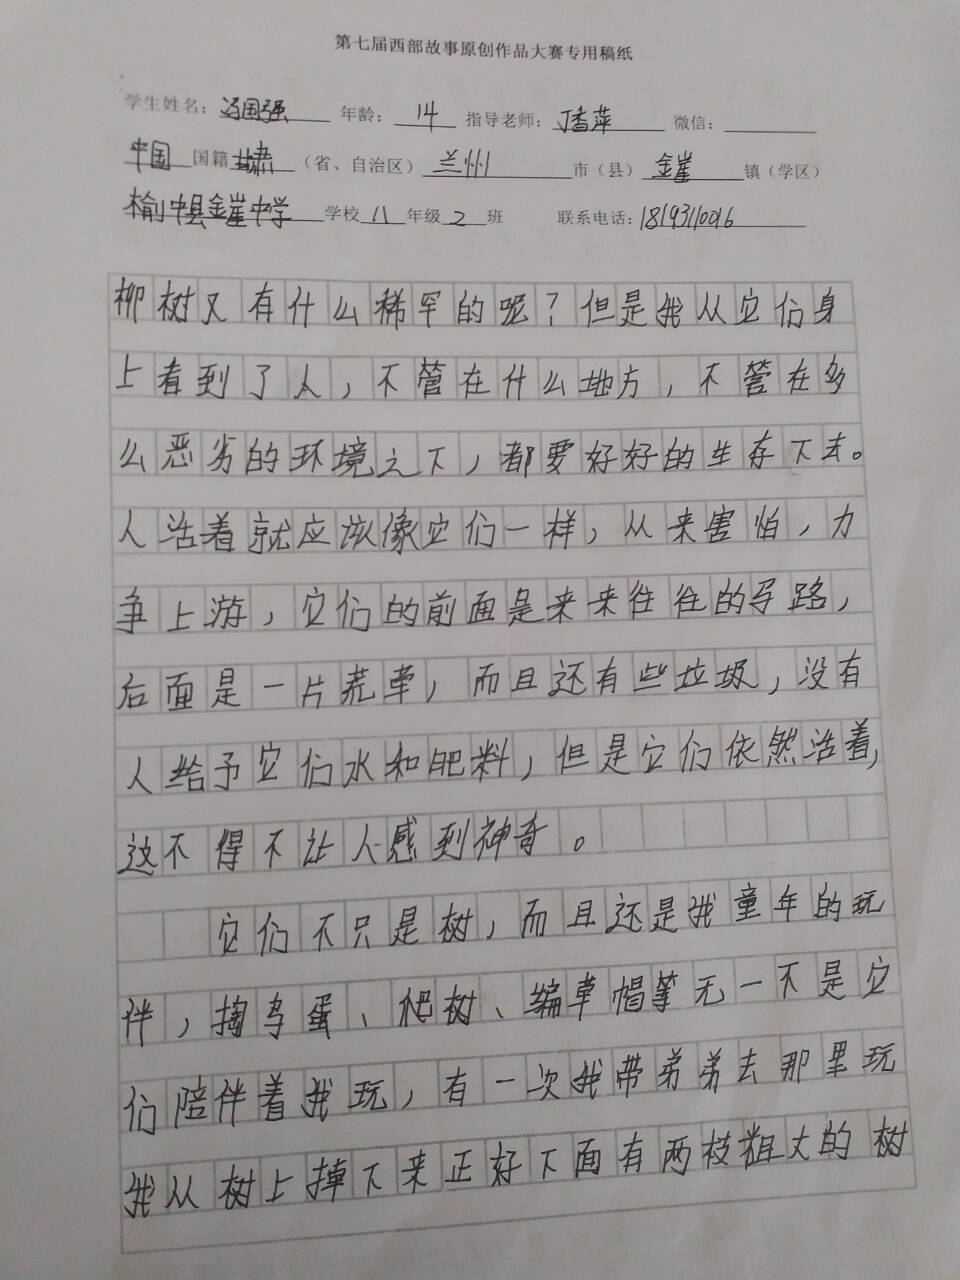 第七届西部故事原创作品大赛专用稿纸
学生姓名：冯国强 年龄：14 指导老师：丁香萍 微信：
中国 国籍 甘肃（省、自治区） 兰州 市（县） 金崖 镇（学区）
榆中县金崖中学 学校 八 年级 2 班 联系电话：18193110016
柳树又有什么稀罕的呢？但是我从它们身
上看到了人，不管在什么地方，不管在多
么恶劣的环境之下，都要好好的生存下去。
人活着就应该像它们一样，从来害怕，力
争上游，它们的前面是来来往往的导路，
后面是一片荒草，而且还有些垃圾，没有
人给予它们水和肥料，但是它们依然活着，
这不得不让人感到神奇。
它们不只是树，而且还是我童年的玩
伴，掏鸟蛋、爬树、编草帽等无一不是它
们陪伴着我玩，有一次我带弟弟去那里玩
我从树上掉下来正好下面有两枝粗大的树